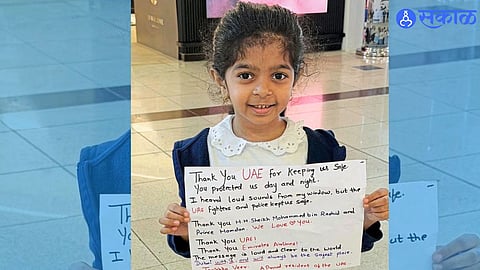 सकाळ
Thank You UAE for Keeping us Safe
You protected us day and night.
I heard loud sounds from my window, but the
UAE fighters and police kept us safe.
Thank You H.H Sheikh Mohammad bin Rashid and
Prince Hamdan. We Love You.
Thank You UAE!
Thank You Emirates Airlines!
The message is loud and clear to the world
Dubai was, is and will always be the safest place.
A Proud resident of the UAE